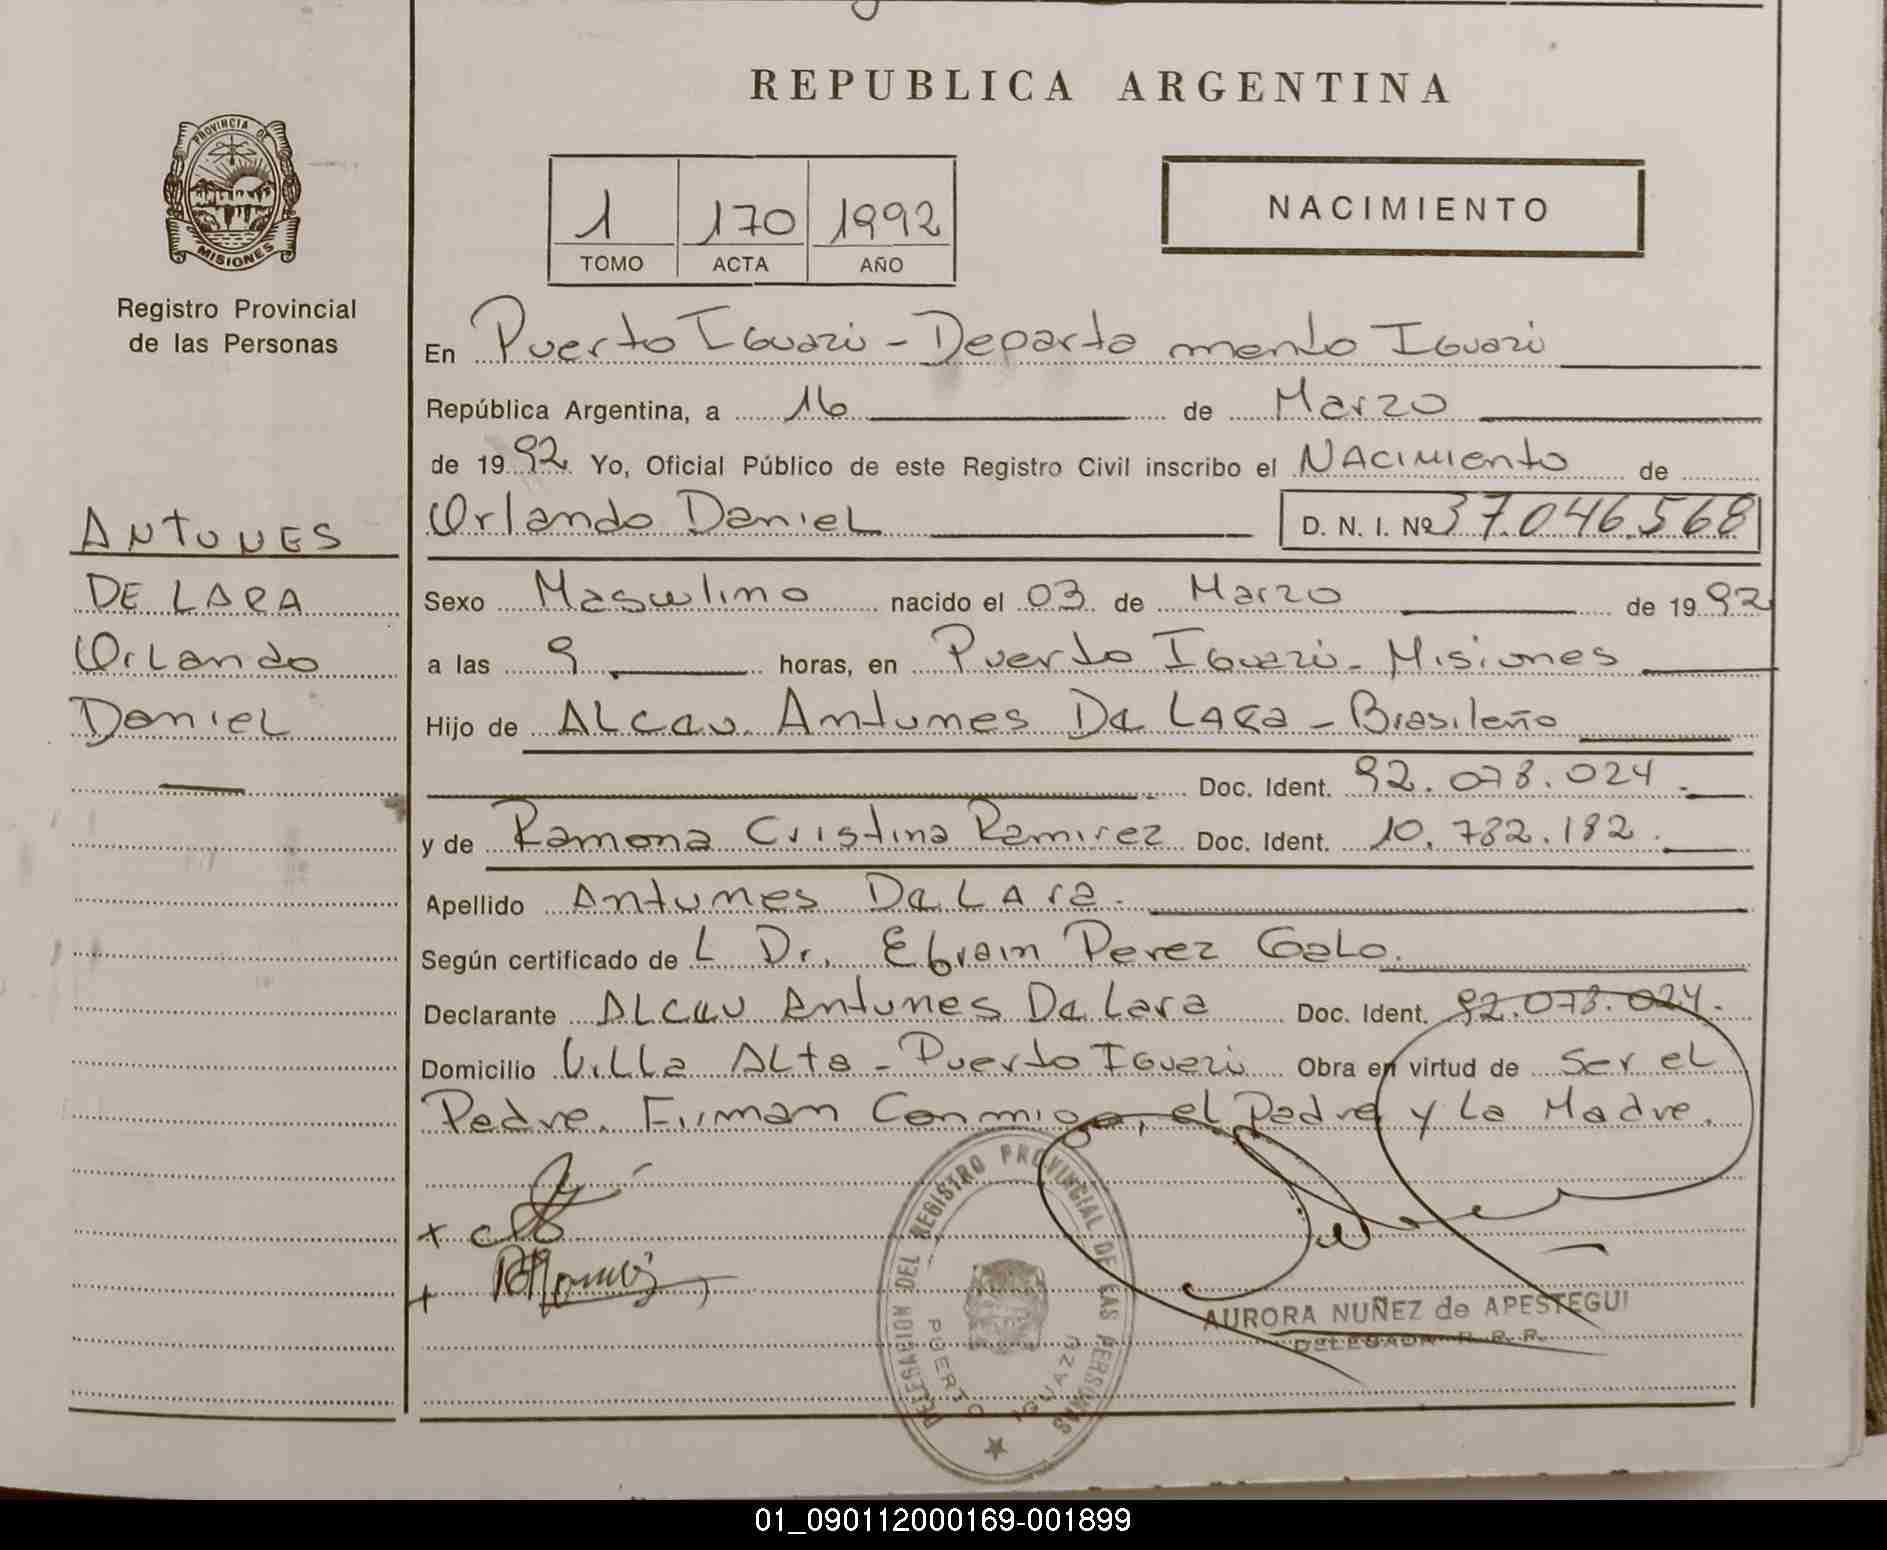 REPUBLICA ARGENTINA
PROVINCIA DE
MISIONES
Registro Provincial
de las Personas
1 170 1992
TOMO ACTA AÑO
NACIMIENTO
En Puerto Iguazú - Departamento Iguazú
República Argentina, a 16 de Marzo
de 1992 Yo, Oficial Público de este Registro Civil inscribo el NAcimiento de
Orlando DanieL D. N. I. Nº 37.046.568
ANTUNES
DE LARA
OrLando
DanieL
Sexo Masculino nacido el 03 de Marzo de 1992
a las 9 horas, en Puerto Iguazú - Misiones
Hijo de Antunes De LARa - Brasileño
Doc. Ident. 92.073.024.
y de Ramona Cristina Ramirez Doc. Ident. 10.732.182.
Apellido Antunes De LAra.
Según certificado de L Dr. Efrain Perez GaLo.
Declarante Antunes De Lara Doc. Ident. 92.073.024.
Domicilio ViLLa ALta - Puerto Iguazú Obra en virtud de Ser eL
Padre. Firman Conmigo, el Padre y La Madre.
DELEGACION DEL REGISTRO PROVINCIAL DE LAS PERSONAS
PUERTO IGUAZU
AURORA NUÑEZ de APESTEGUI
DELEGADA R. P. P.
01_090112000169-001899